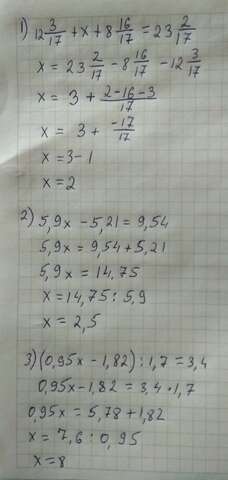 1) 12 3/17 + x + 8 16/17 = 23 2/17
x = 23 2/17 - 8 16/17 - 12 3/17
x = 3 + (2-16-3)/17
x = 3 + -17/17
x = 3-1
x = 2
2) 5,9x - 5,21 = 9,54
5,9x = 9,54 + 5,21
5,9x = 14,75
x = 14,75 : 5,9
x = 2,5
3) (0,95x - 1,82) : 1,7 = 3,4
0,95x - 1,82 = 3,4 · 1,7
0,95x = 5,78 + 1,82
x = 7,6 : 0,95
x = 8